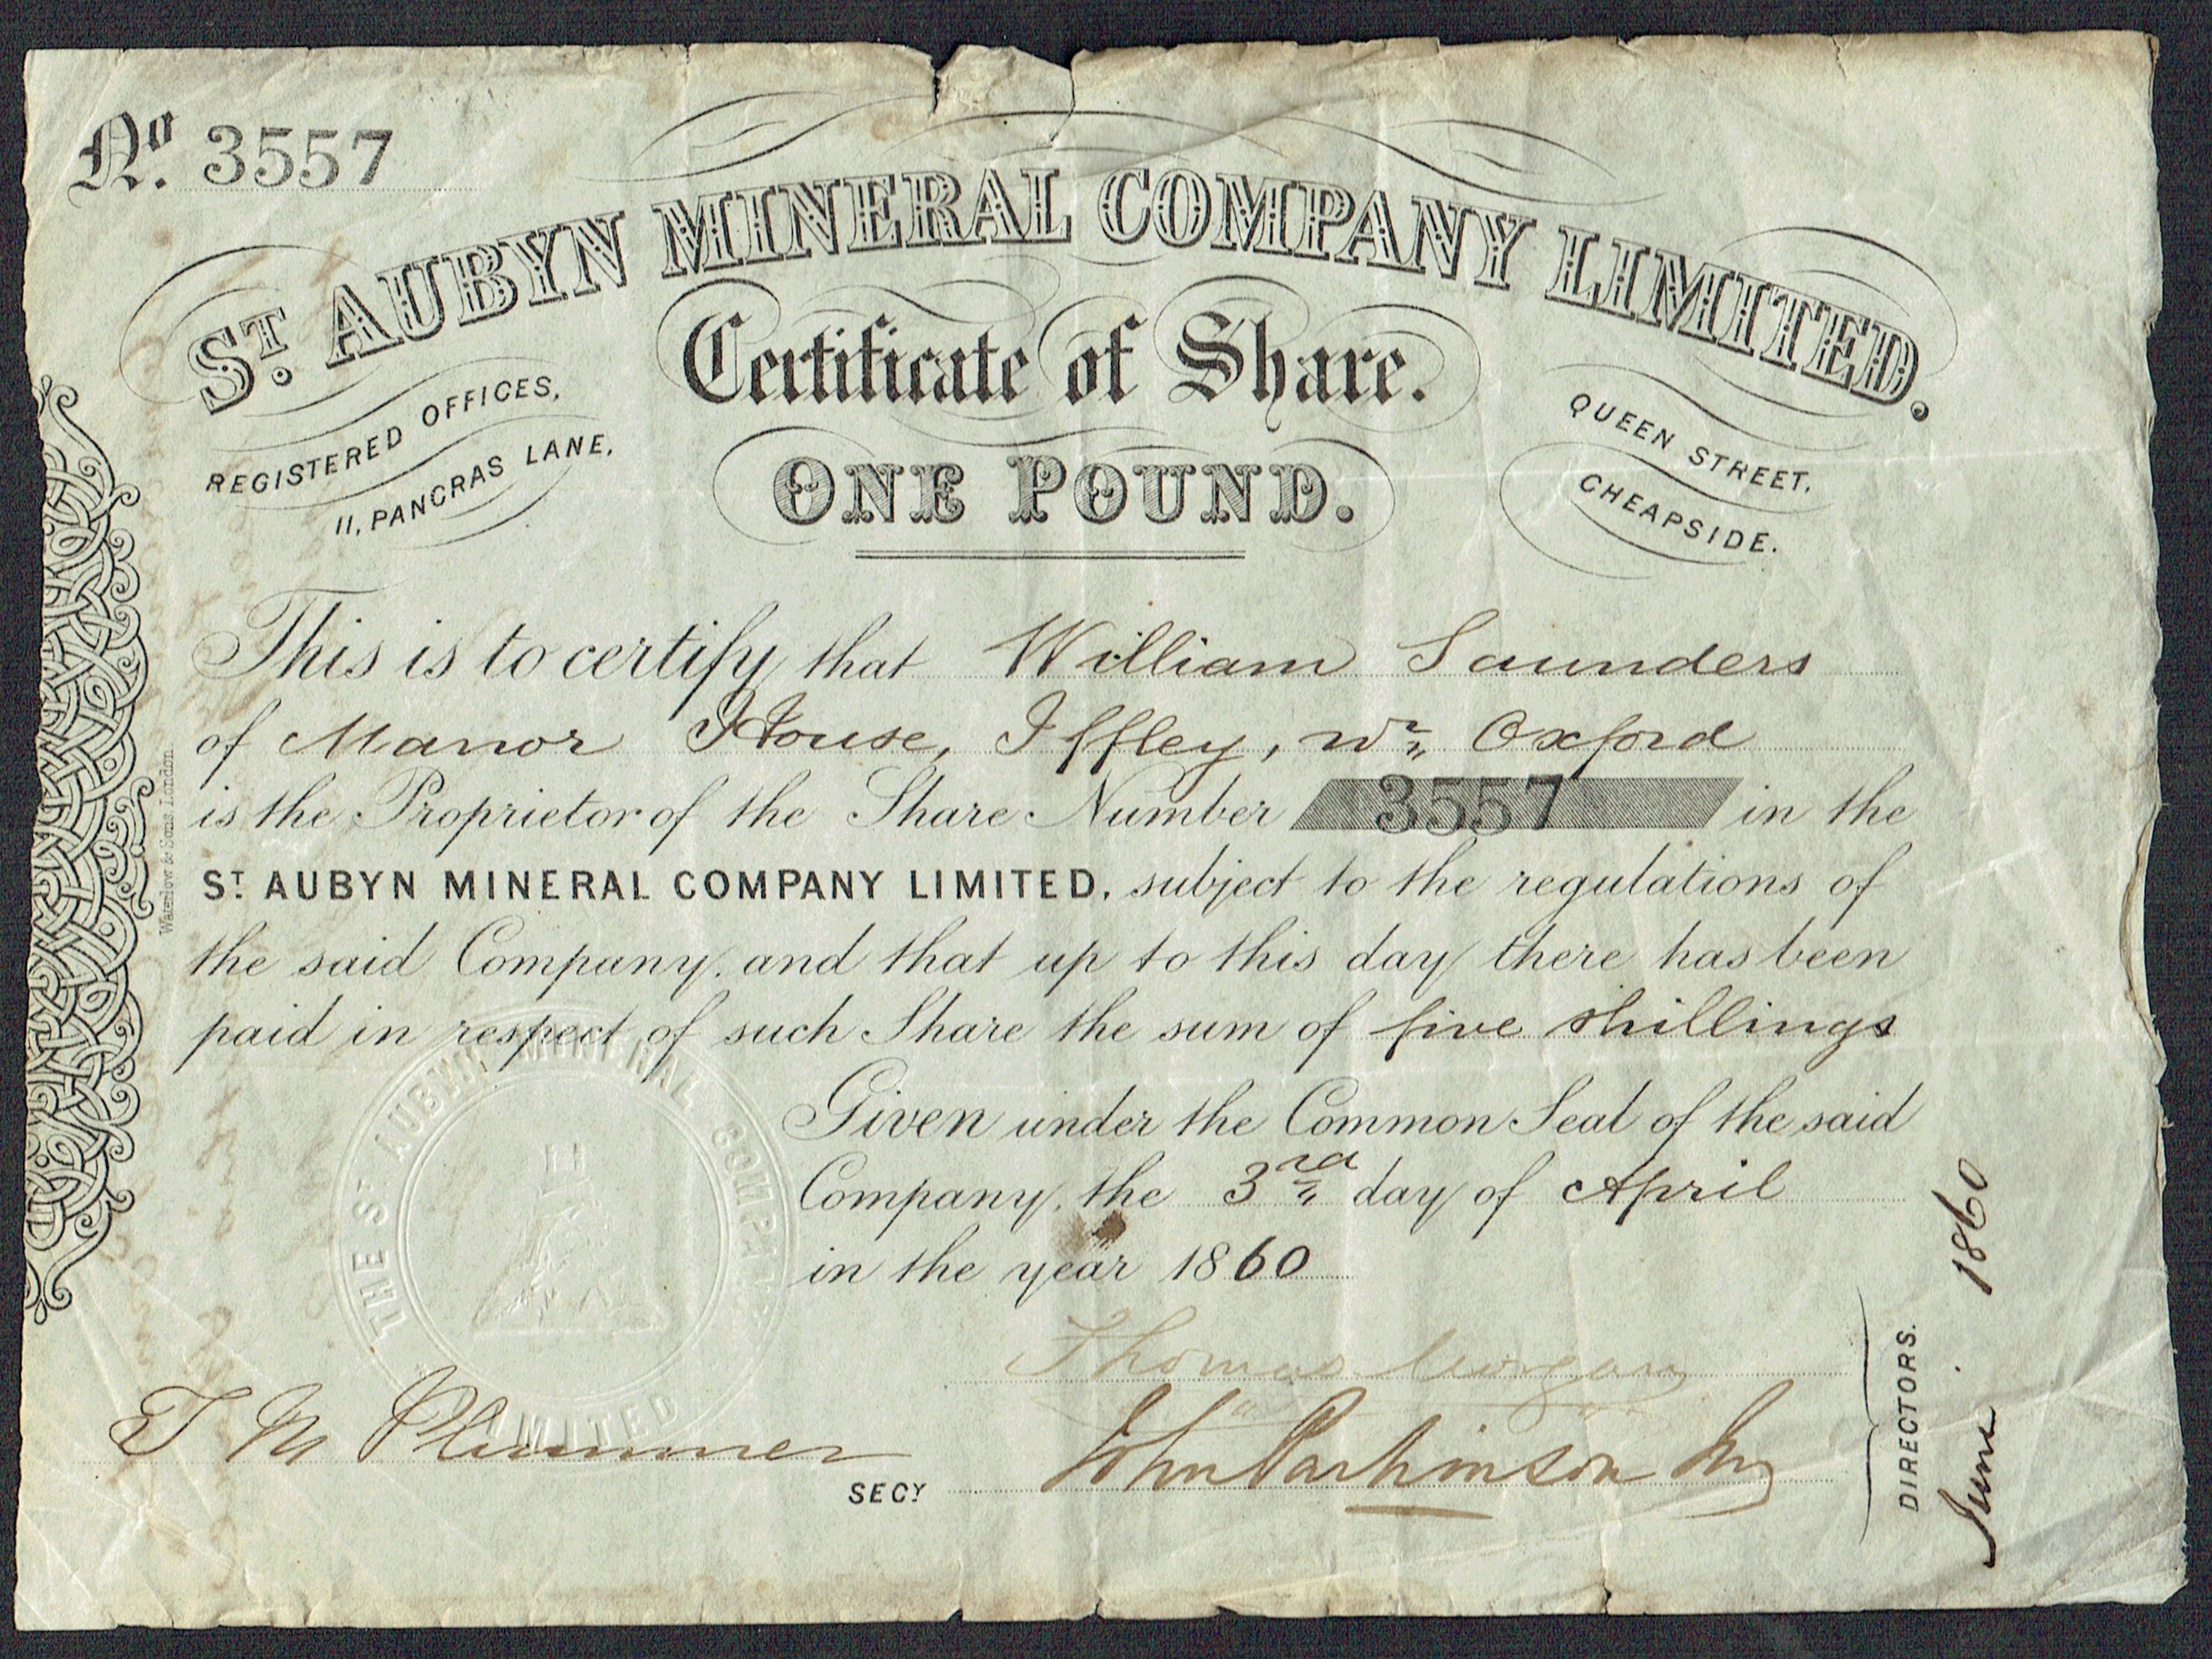 No. 3557
ST. AUBYN MINERAL COMPANY LIMITED.
Certificate of Share.
REGISTERED OFFICES,
11, PANCRAS LANE,
QUEEN STREET,
CHEAPSIDE.
ONE POUND.
This is to certify that William Saunders
of Manor House, Iffley, nr. Oxford
is the Proprietor of the Share Number 3557 in the
ST. AUBYN MINERAL COMPANY LIMITED, subject to the regulations of
the said Company, and that up to this day there has been
paid in respect of such Share the sum of five shillings
Given under the Common Seal of the said
Company, the 3rd day of April
in the year 1860
THE ST AUBYN MINERAL COMPANY LIMITED
Thomas Morgan
T M Plummer
SECY
John Parkinson Jn
DIRECTORS.
June 1860
Waterlow & Sons, London